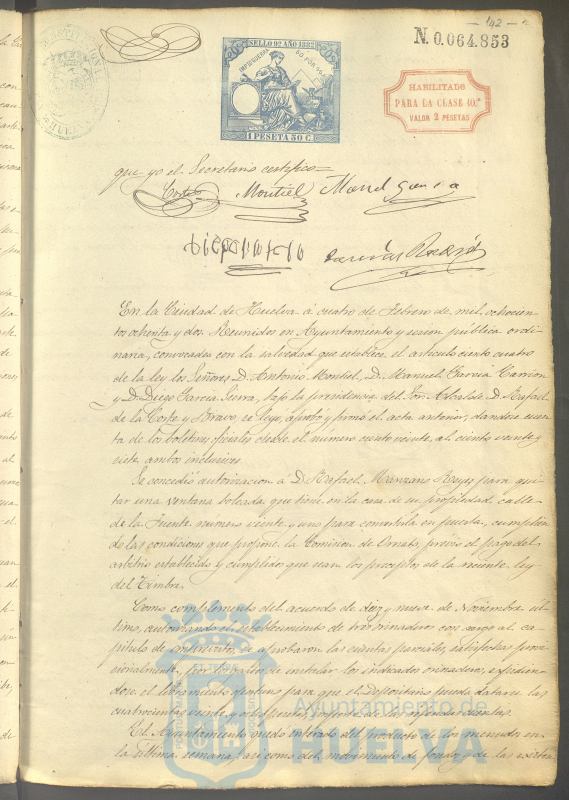 - 142 -
N. 0.064.853
SELLO 9º AÑO 1882
1 PESETA 50 C.
HABILITADO
PARA LA CLASE 10.ª
VALOR 2 PESETAS
que yo el Secretario certifico =
Montiel Man¹ Garcia
En la Ciudad de Huelva á cuatro de Febrero de mil ochocien
tos ochenta y dos. Reunidos en Ayuntamiento y sesion pública ordi-
naria, convocada con la salvedad que establece el articulo ciento cuatro
de la ley los Señores D. Antonio Montiel, D. Manuel Garcia Carrion
y D. Diego Garcia Sierra, bajo la presidencia del Sor. Alcalde D. Rafael
de la Corte y Bravo, se leyó, aprobó y firmó el acta anterior, dandose cuen
ta de los boletines oficiales desde el numero ciento veinte al ciento veinte y
siete ambos inclusives
Se concedió autorizacion á D. Rafael Manzano Reyes para qui
tar una ventana boleada que tiene en la casa de su propiedad calle
de la Fuente numero veinte y uno para convertirla en puerta, cumplien
do las condiciones que propone la Comision de Ornato, previo el pago del
arbitrio establecido y cumplidos que sean los preceptos de la reciente ley
del Timbre.
Como complemento del acuerdo de diez y nueve de Noviembre úl-
timo, autorizando el establecimiento de tres orinaderos con cargo al ca
pitulo de imprevistos, se aprobaron las cuentas parciales, satisfechas provi
sionalmente, por trabajos de instalar los indicados orinaderos, espidien-
dose el libramiento oportuno para que el Depositario pueda datarse las
cuatrocientas veinte y ocho pesetas, importe de las referidas cuentas.
El Ayuntamiento quedó enterado del producto de los menudos en
la última semana, asi como del movimiento de fondos y de las existen
Ayuntamiento de
HUELVA